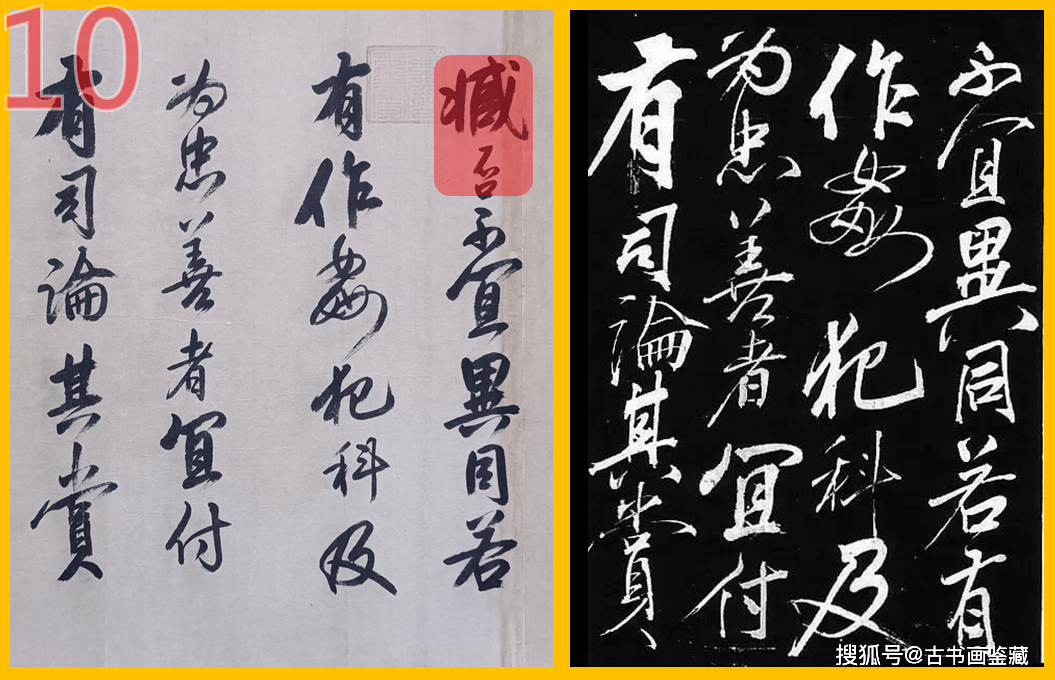 10
臧否不宜異同若
有作姦犯科及
为忠善者宜付
有司論其賞
不宜異同若有
作姦犯科及
为忠善者宜付
有司論其賞
搜狐号@古书画鉴藏